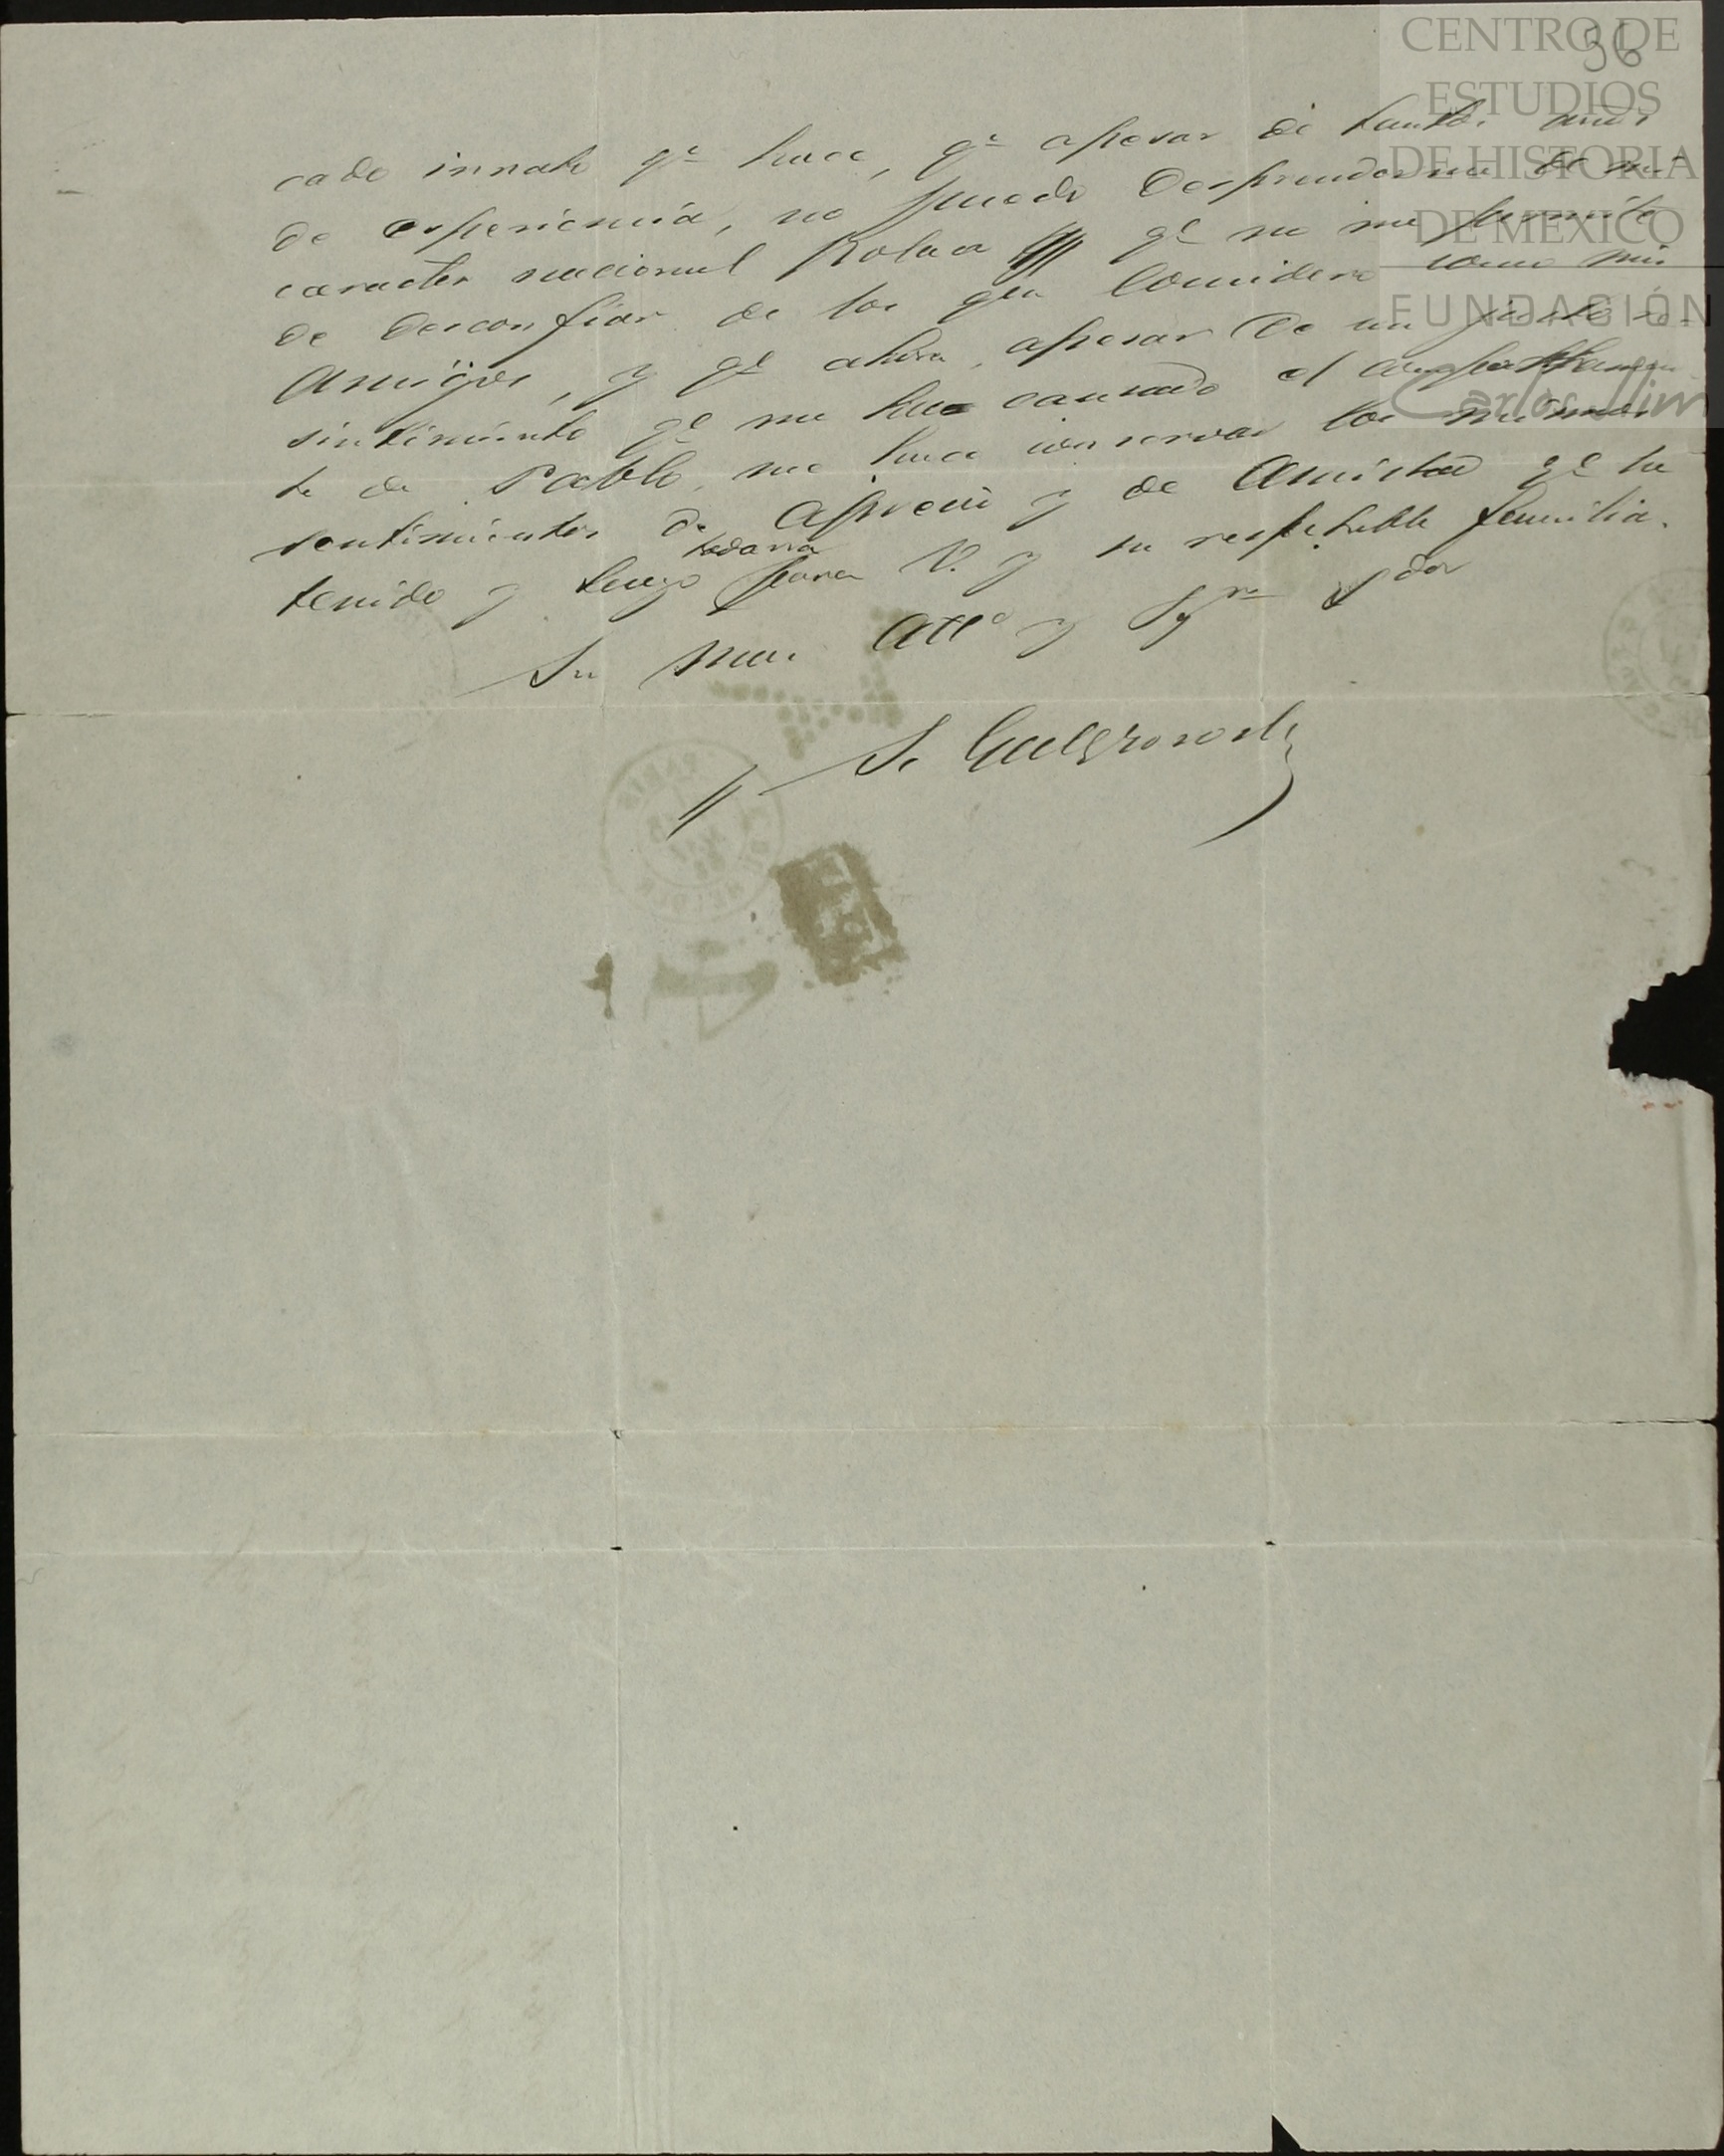 CENTRO DE
ESTUDIOS
DE HISTORIA
DE MEXICO
FUNDACIÓN
Carlos Slim
36
cado innato qe hace, qe apesar de tantos años
de esperiencia, no puedo desprenderme de mi
caracter nacional Polaco qe no me permite
de desconfiar de los que considero como mis
amigos, y qe ahora, apesar de un justo re-
sintimiento qe me ha causado el comportamien
to de Pablo, me hace conservar los mismos
sentimientos de aprecio y de amistad qe he
tenido y tengo todavia para V. y su respetable familia.
Su mui atto y Sgro Sdor
S.
PARIS